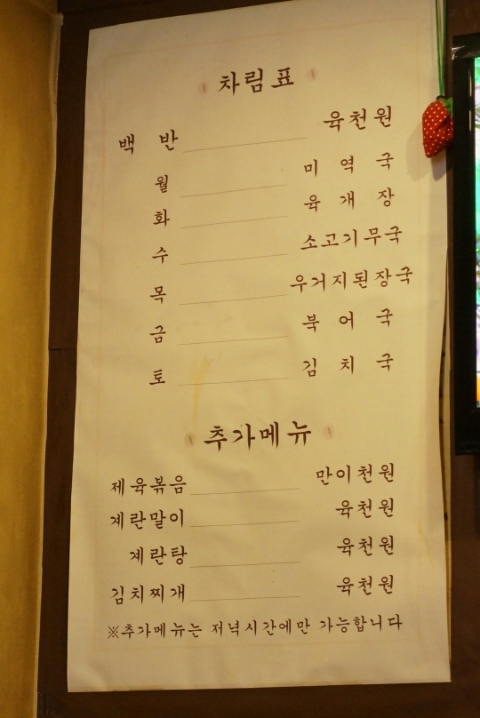 차림표
백 반 육천원
월 미 역 국
화 육 개 장
수 소고기무국
목 우거지된장국
금 북 어 국
토 김 치 국
추가메뉴
제육볶음 만이천원
계란말이 육천원
계란탕 육천원
김치찌개 육천원
※추가메뉴는 저녁시간에만 가능합니다